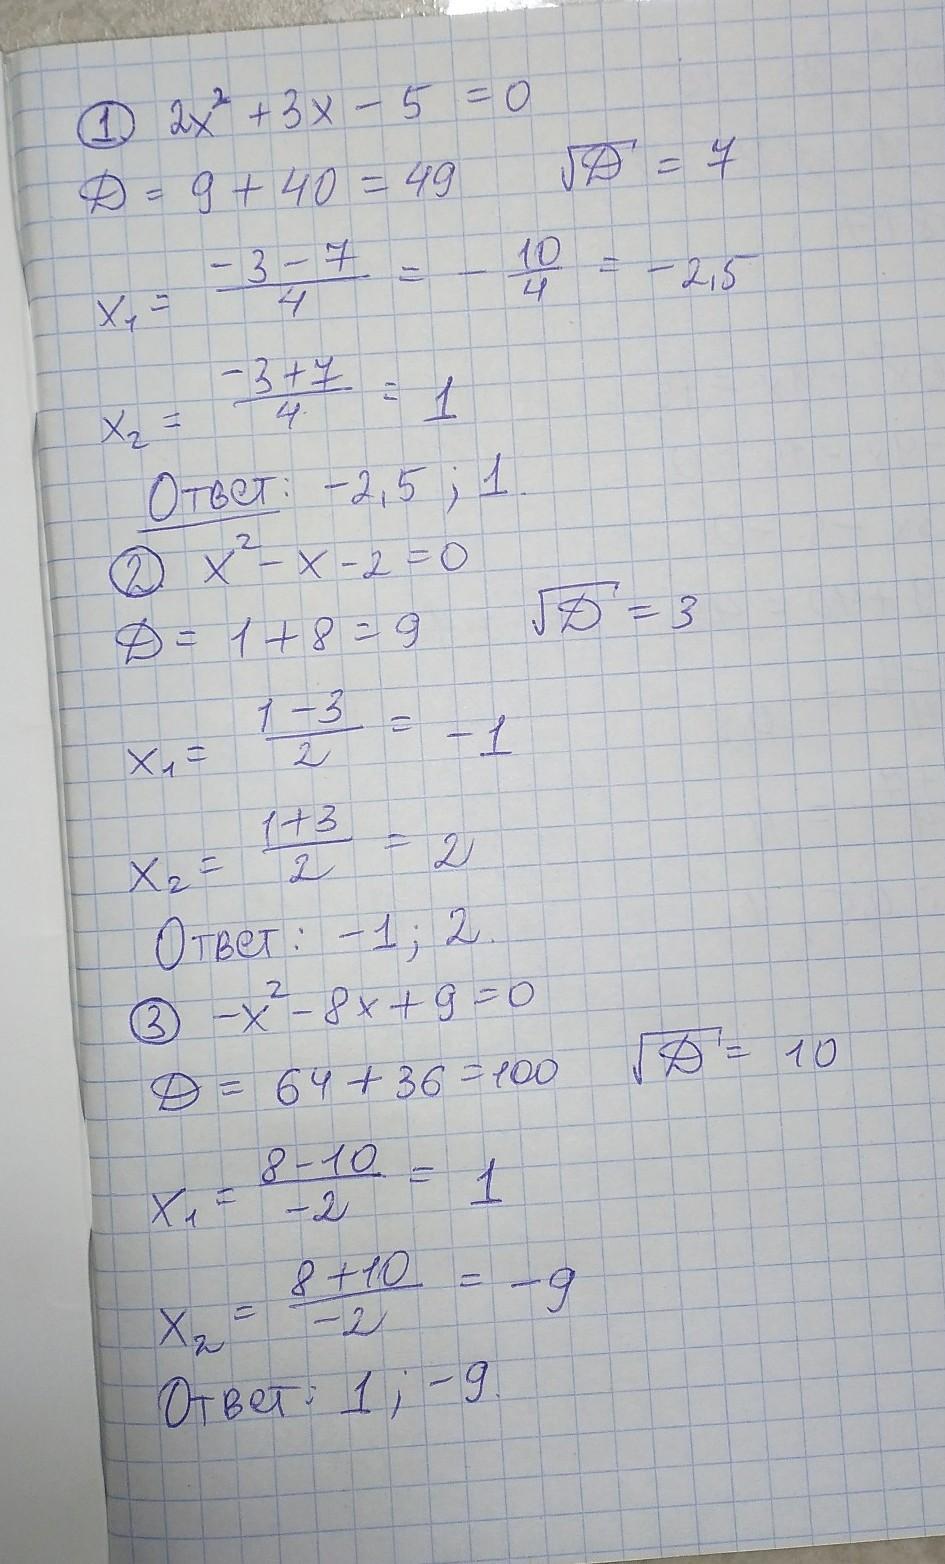 ① 2x² + 3x - 5 = 0
D = 9 + 40 = 49 √D = 7
x₁ = (-3 - 7)/4 = - 10/4 = -2,5
x₂ = (-3 + 7)/4 = 1
Ответ: -2,5 ; 1.
② x² - x - 2 = 0
D = 1 + 8 = 9 √D = 3
x₁ = (1 - 3)/2 = -1
x₂ = (1 + 3)/2 = 2
Ответ: -1 ; 2.
③ -x² - 8x + 9 = 0
D = 64 + 36 = 100 √D = 10
x₁ = (8 - 10)/-2 = 1
x₂ = (8 + 10)/-2 = -9
Ответ: 1 ; -9.